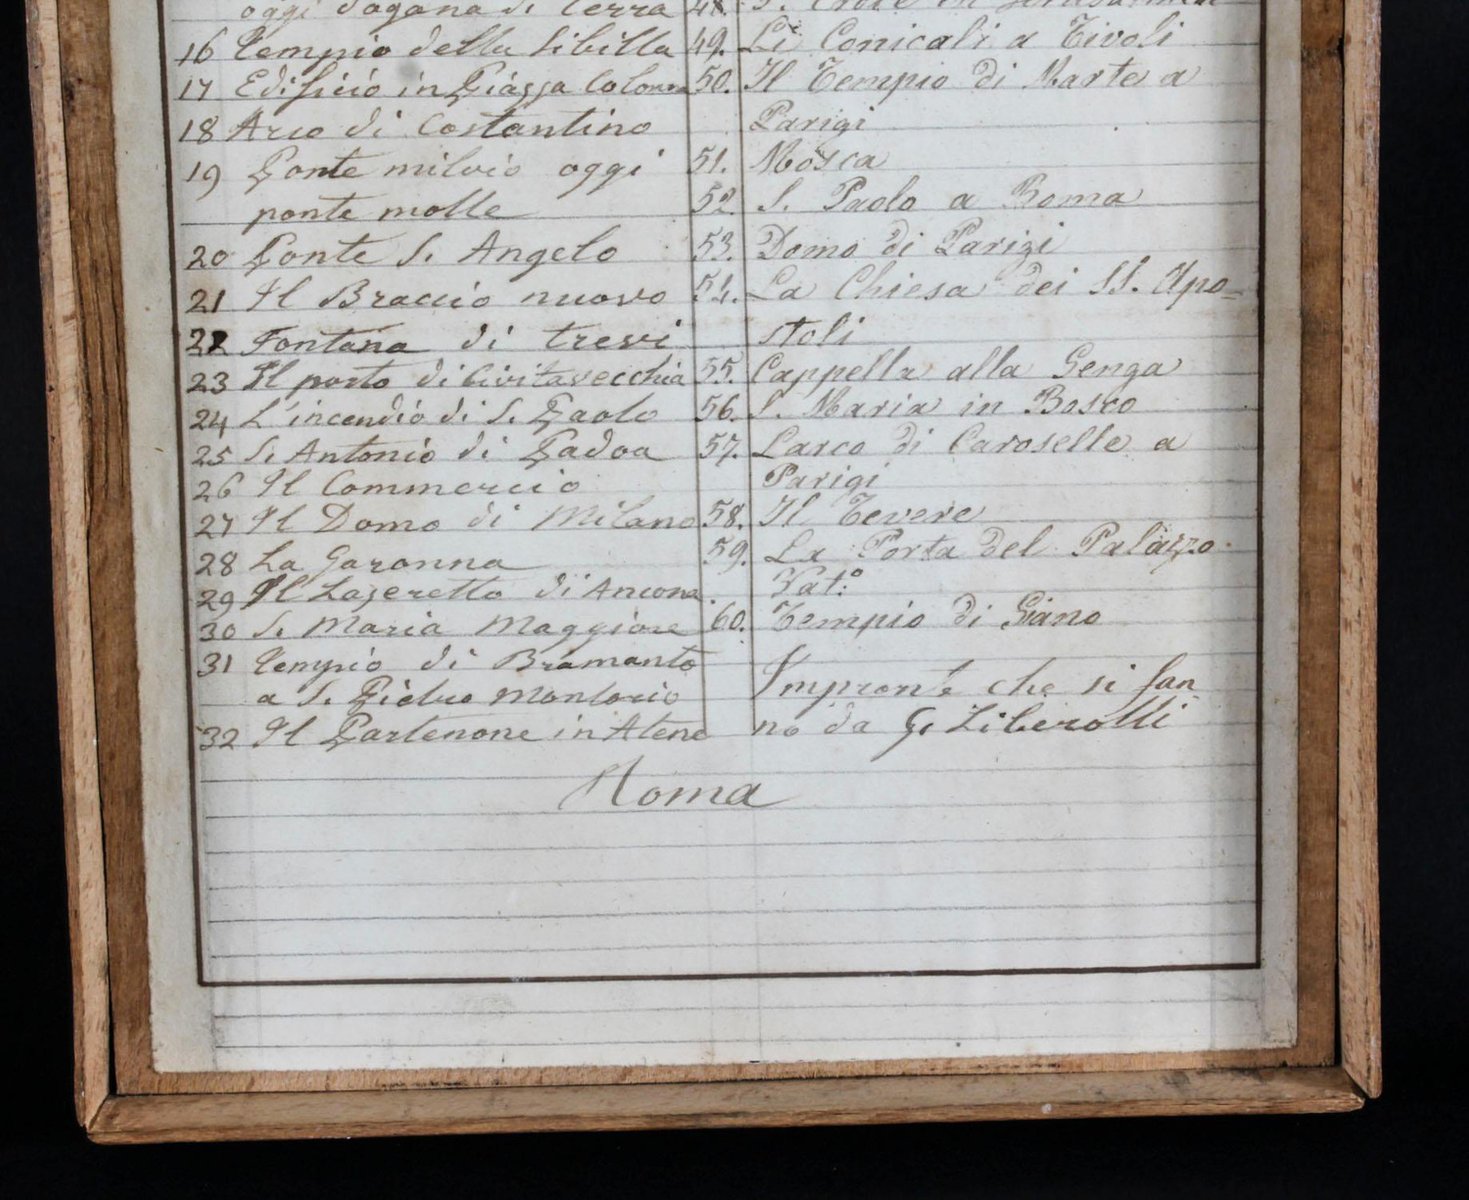 oggi Dogana di terra
16 Tempio della Sibilla
17 Edificio in Piazza Colonna
18 Arco di Costantino
19 Ponte milvio oggi
ponte molle
20 Ponte S. Angelo
21 Il Braccio nuovo
22 Fontana di trevi
23 Il porto di Civitavecchia
24 L'incendio di S. Paolo
25 S. Antonio di Padoa
26 Il Commercio
27 Il Domo di Milano
28 La Garonna
29 Il Lazeretto di Ancona
30 S. Maria Maggiore
31 Tempio di Bramanto
a S. Pietro Montorio
32 Il Partenone in Atene
48. S. Croce in Gerusalemme
49. Li Conicali a Tivoli
50. Il Tempio di Marte a
Parigi
51. Mosca
52. S. Paolo a Roma
53. Domo di Parigi
54. La Chiesa dei SS. Apo-
stoli
55. Cappella alla Genga
56. S. Maria in Bosco
57. Larco di Caroselle a
Parigi
58. Il Tevere
59. La Porta del Palazzo
Vat:o
60. Tempio di Giano
Impronte che si fan
no da G. Liberotti
Roma